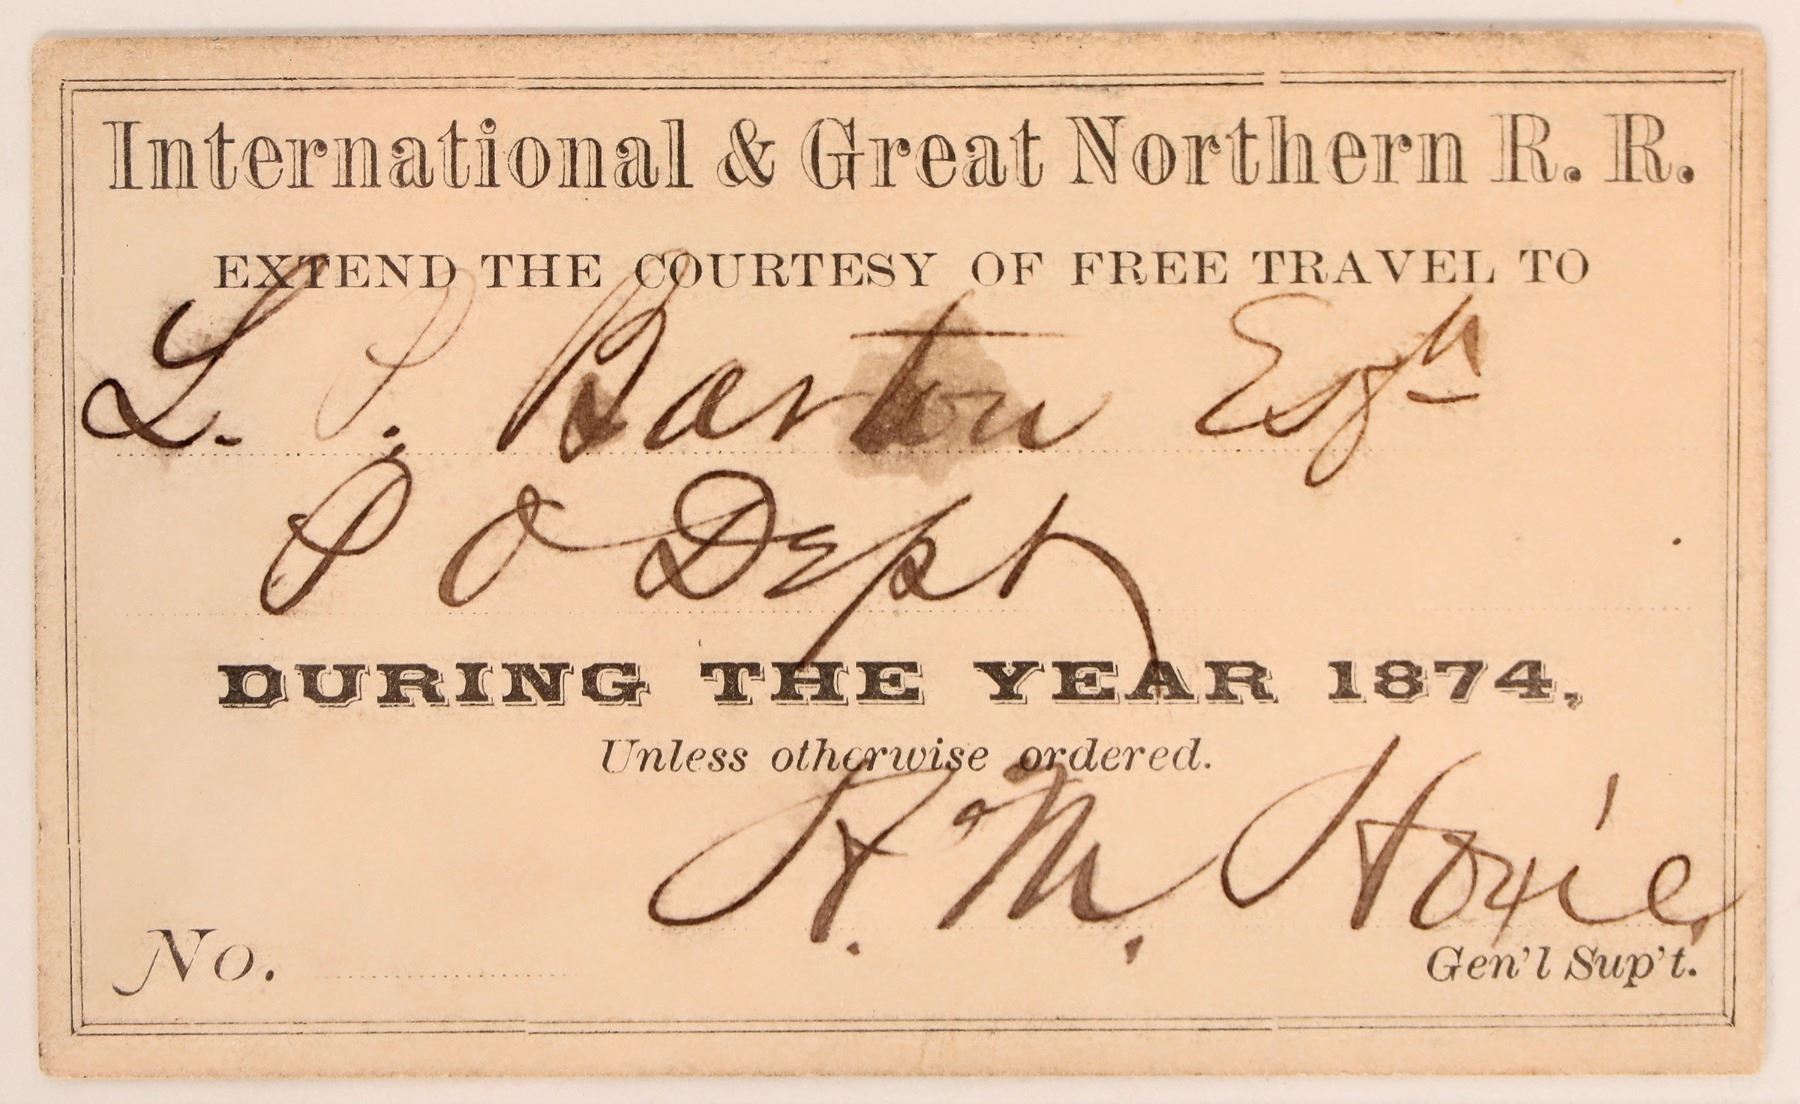 International & Great Northern R. R.
EXTEND THE COURTESY OF FREE TRAVEL TO
L. P. Barton Esqr
P O Dept
DURING THE YEAR 1874,
Unless otherwise ordered.
H. M. Hoxie
No.
Gen'l Sup't.